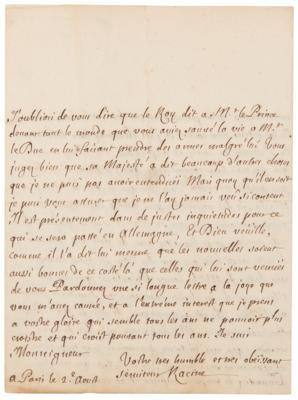 J'oubliois de vous dire que le Roy dit a Mr le Prince
devant tout le monde que vous aviez sauvé la vie a Mr
le Duc en lui faisant prendre des armes malgré lui. Vous
jugez bien que sa Majesté a dit beaucoup d'autres choses
que je ne puis pas avoir entendues. Mais quoy qu'il en soit
je puis vous assurer que je ne l'ay jamais veu si content.
Il est presentement dans de justes inquietudes pour ce
qui se sera passé en Allemagne, et Dieu veuille,
comme il l'a dit lui mesme que les nouvelles soient
aussi bonnes de ce costé la que celles qui lui sont venues
de vous. Pardonnez une si longue lettre a la joye que
vous m'avez causée, et a l'extreme interest que je prens
a vostre gloire qui semble tous les ans ne pouvoir plus
croistre et qui croist pourtant tous les ans. Je suis
Monseigneur
Vostre tres humble et tres obeissant
serviteur Racine
a Paris le 2e Aoust